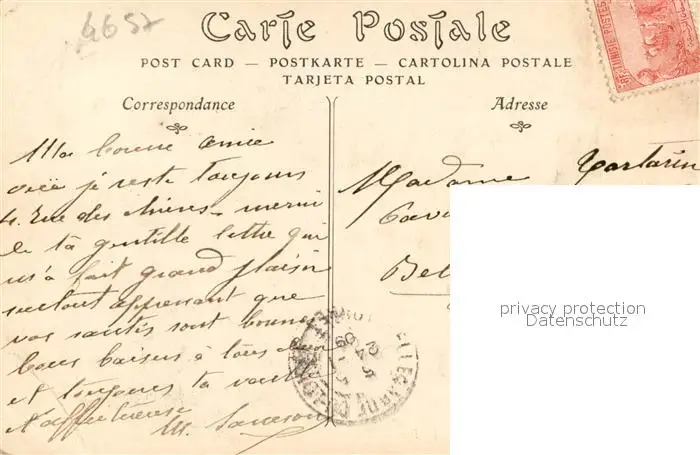 4657
Carte Postale
POST CARD — POSTKARTE — CARTOLINA POSTALE
TARJETA POSTAL
Correspondance
Adresse
Ma bonne amie
je reste toujours
4. rue des
de ta gentille lettre qui
m'a fait grand plaisir
surtout apprenant que
vos santés sont bonnes
bons baisers à tous
et toujours ta
affectueuse
M.
Madame Tartarin
privacy protection
Datenschutz